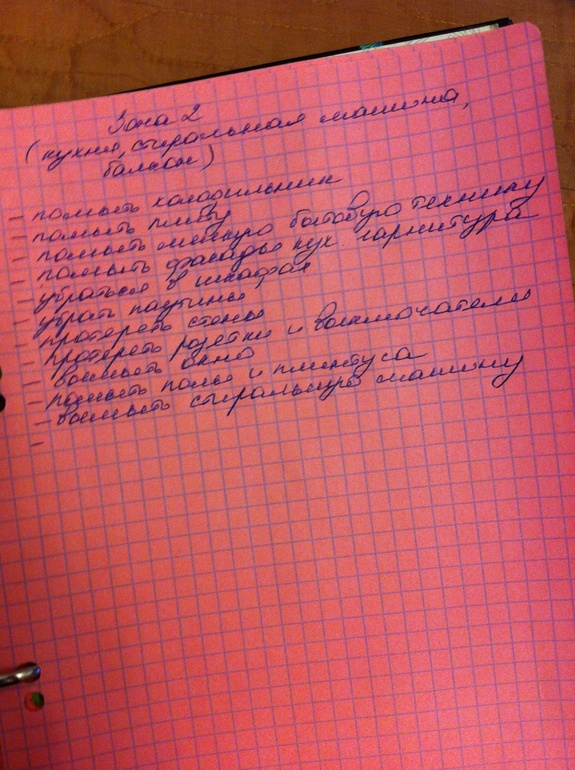 Зона 2
(кухня, стиральная машина,
балкон)
- помыть холодильник
- помыть плиту
- помыть мелкую бытовую технику
- помыть фасады кух. гарнитура
- убраться в шкафах
- убрать паутины
- протереть стены
- протереть розетки и выключатели
- вымыть окно
- помыть полы и плинтуса
- вымыть стиральную машину
-